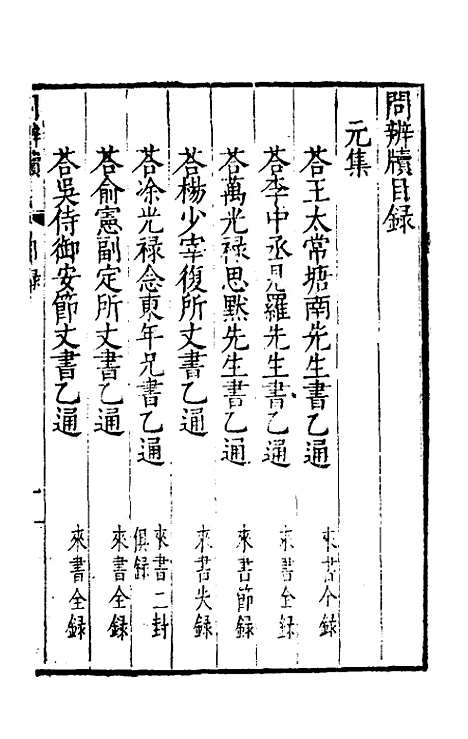 問辨牘目録
元集
荅王太常塘南先生書乙通 來書全録
荅李中丞見羅先生書乙通 來書全録
荅萬光禄思默先生書乙通 來書節録
荅楊少宰復所丈書乙通 來書失録
荅凃光禄念東年兄書乙通 來書二封俱録
荅俞憲副定所丈書乙通 來書全録
荅吳侍御安節丈書乙通 來書全録